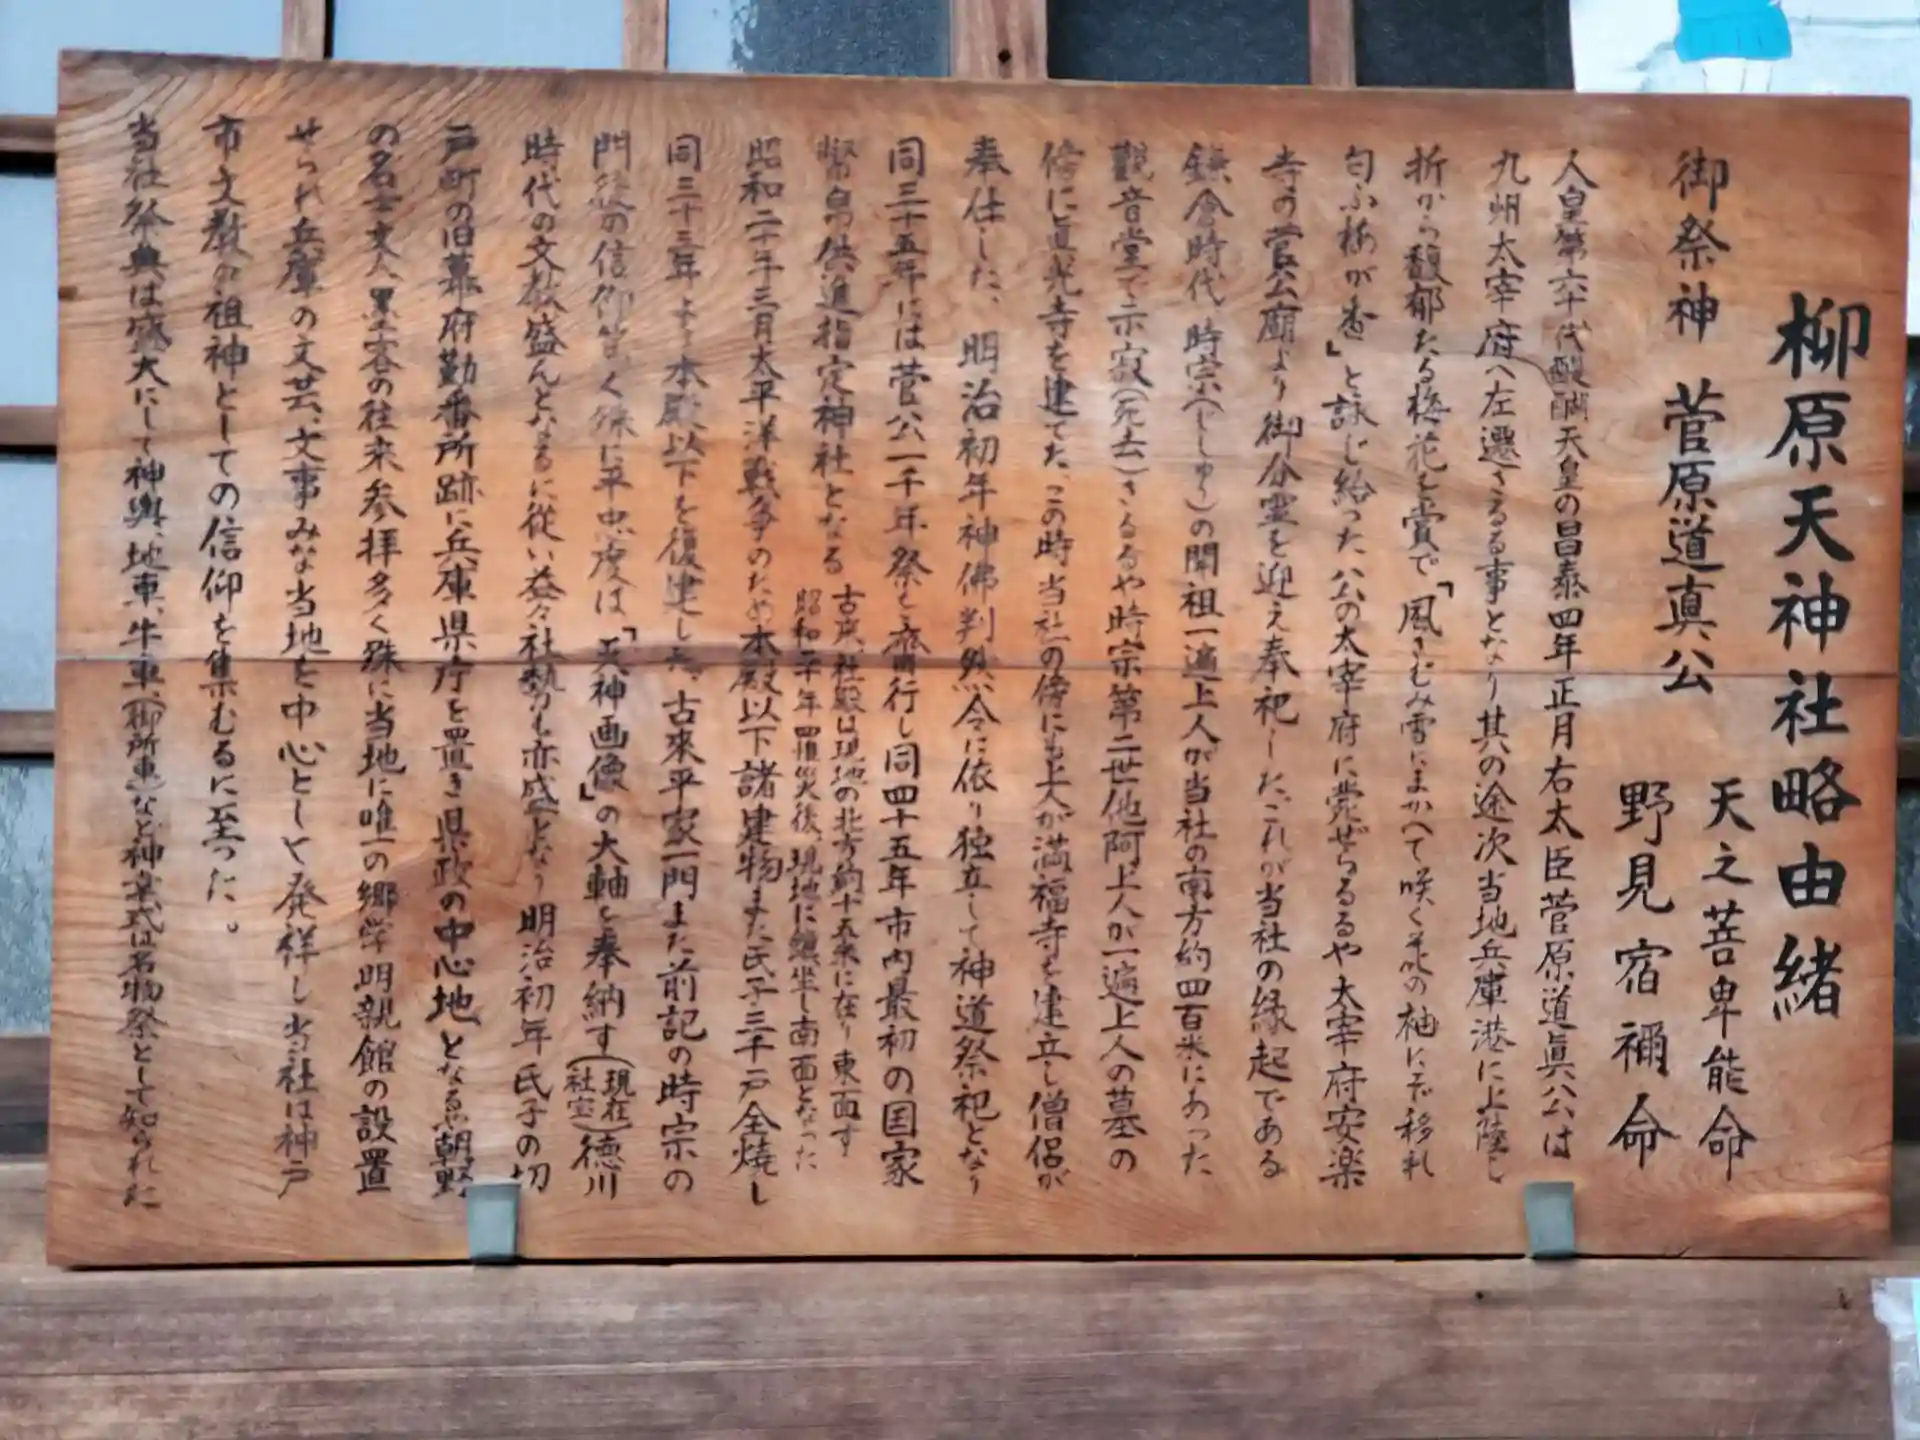 柳原天神社略由緒
御祭神　菅原道真公
天之菩卑能命
野見宿禰命
人皇第六十代醍醐天皇の昌泰四年正月右大臣菅原道眞公は
九州太宰府へ左遷さるる事となり其の途次当地兵庫港に上陸し
折から馥郁たる梅花を賞で「風さむみ雪にまがへて咲く花の袖にぞ移れ
匂ふ梅が香」と詠じ給った公の太宰府に薨ぜらるるや太宰府安楽
寺の菅公廟より御分霊を迎え奉祀したこれが当社の縁起である
鎌倉時代、時宗(じしゅう)の開祖一遍上人が当社の南方約四百米にあった
觀音堂で示寂(死去)さるるや時宗第二世他阿上人が一遍上人の墓の
傍に真光寺を建てた、この時当社の傍にも上人が満福寺を建立し僧侶が
奉仕した、明治初年神佛判然令に依り独立して神道祭祀となり
同三十五年には菅公一千年祭を斎行し同四十五年市内最初の国家
幣帛供進指定神社となる
古来社殿は現地の北方約十五米に在り東面す
昭和二十年罹災後、現地に鎮坐し南面となった
昭和二十年三月太平洋戦争のため本殿以下諸建物また氏子三千戸全焼し
同三十三年より本殿以下を復建した、古來平家一門また前記の時宗の
門後の信仰篤く殊に平忠度は、「天神画像」の大軸を奉納す(現在社宝)徳川
時代の文教盛んとなるに従い益々社勢も亦盛となり明治初年氏子の切
戸町の旧幕府勤番所跡に兵庫県庁を置き県政の中心地となる為朝野
の名士文人、墨客の往来参拝多く殊に当地に唯一の郷学明親館の設置
せられ兵庫の文芸、文事みな当地を中心として発祥し当社は神戸
市文教の祖神としての信仰を集むるに至った。
当社祭典は盛大にして神輿、地車、牛車、(御所車)など神幸式は名物祭として知られた